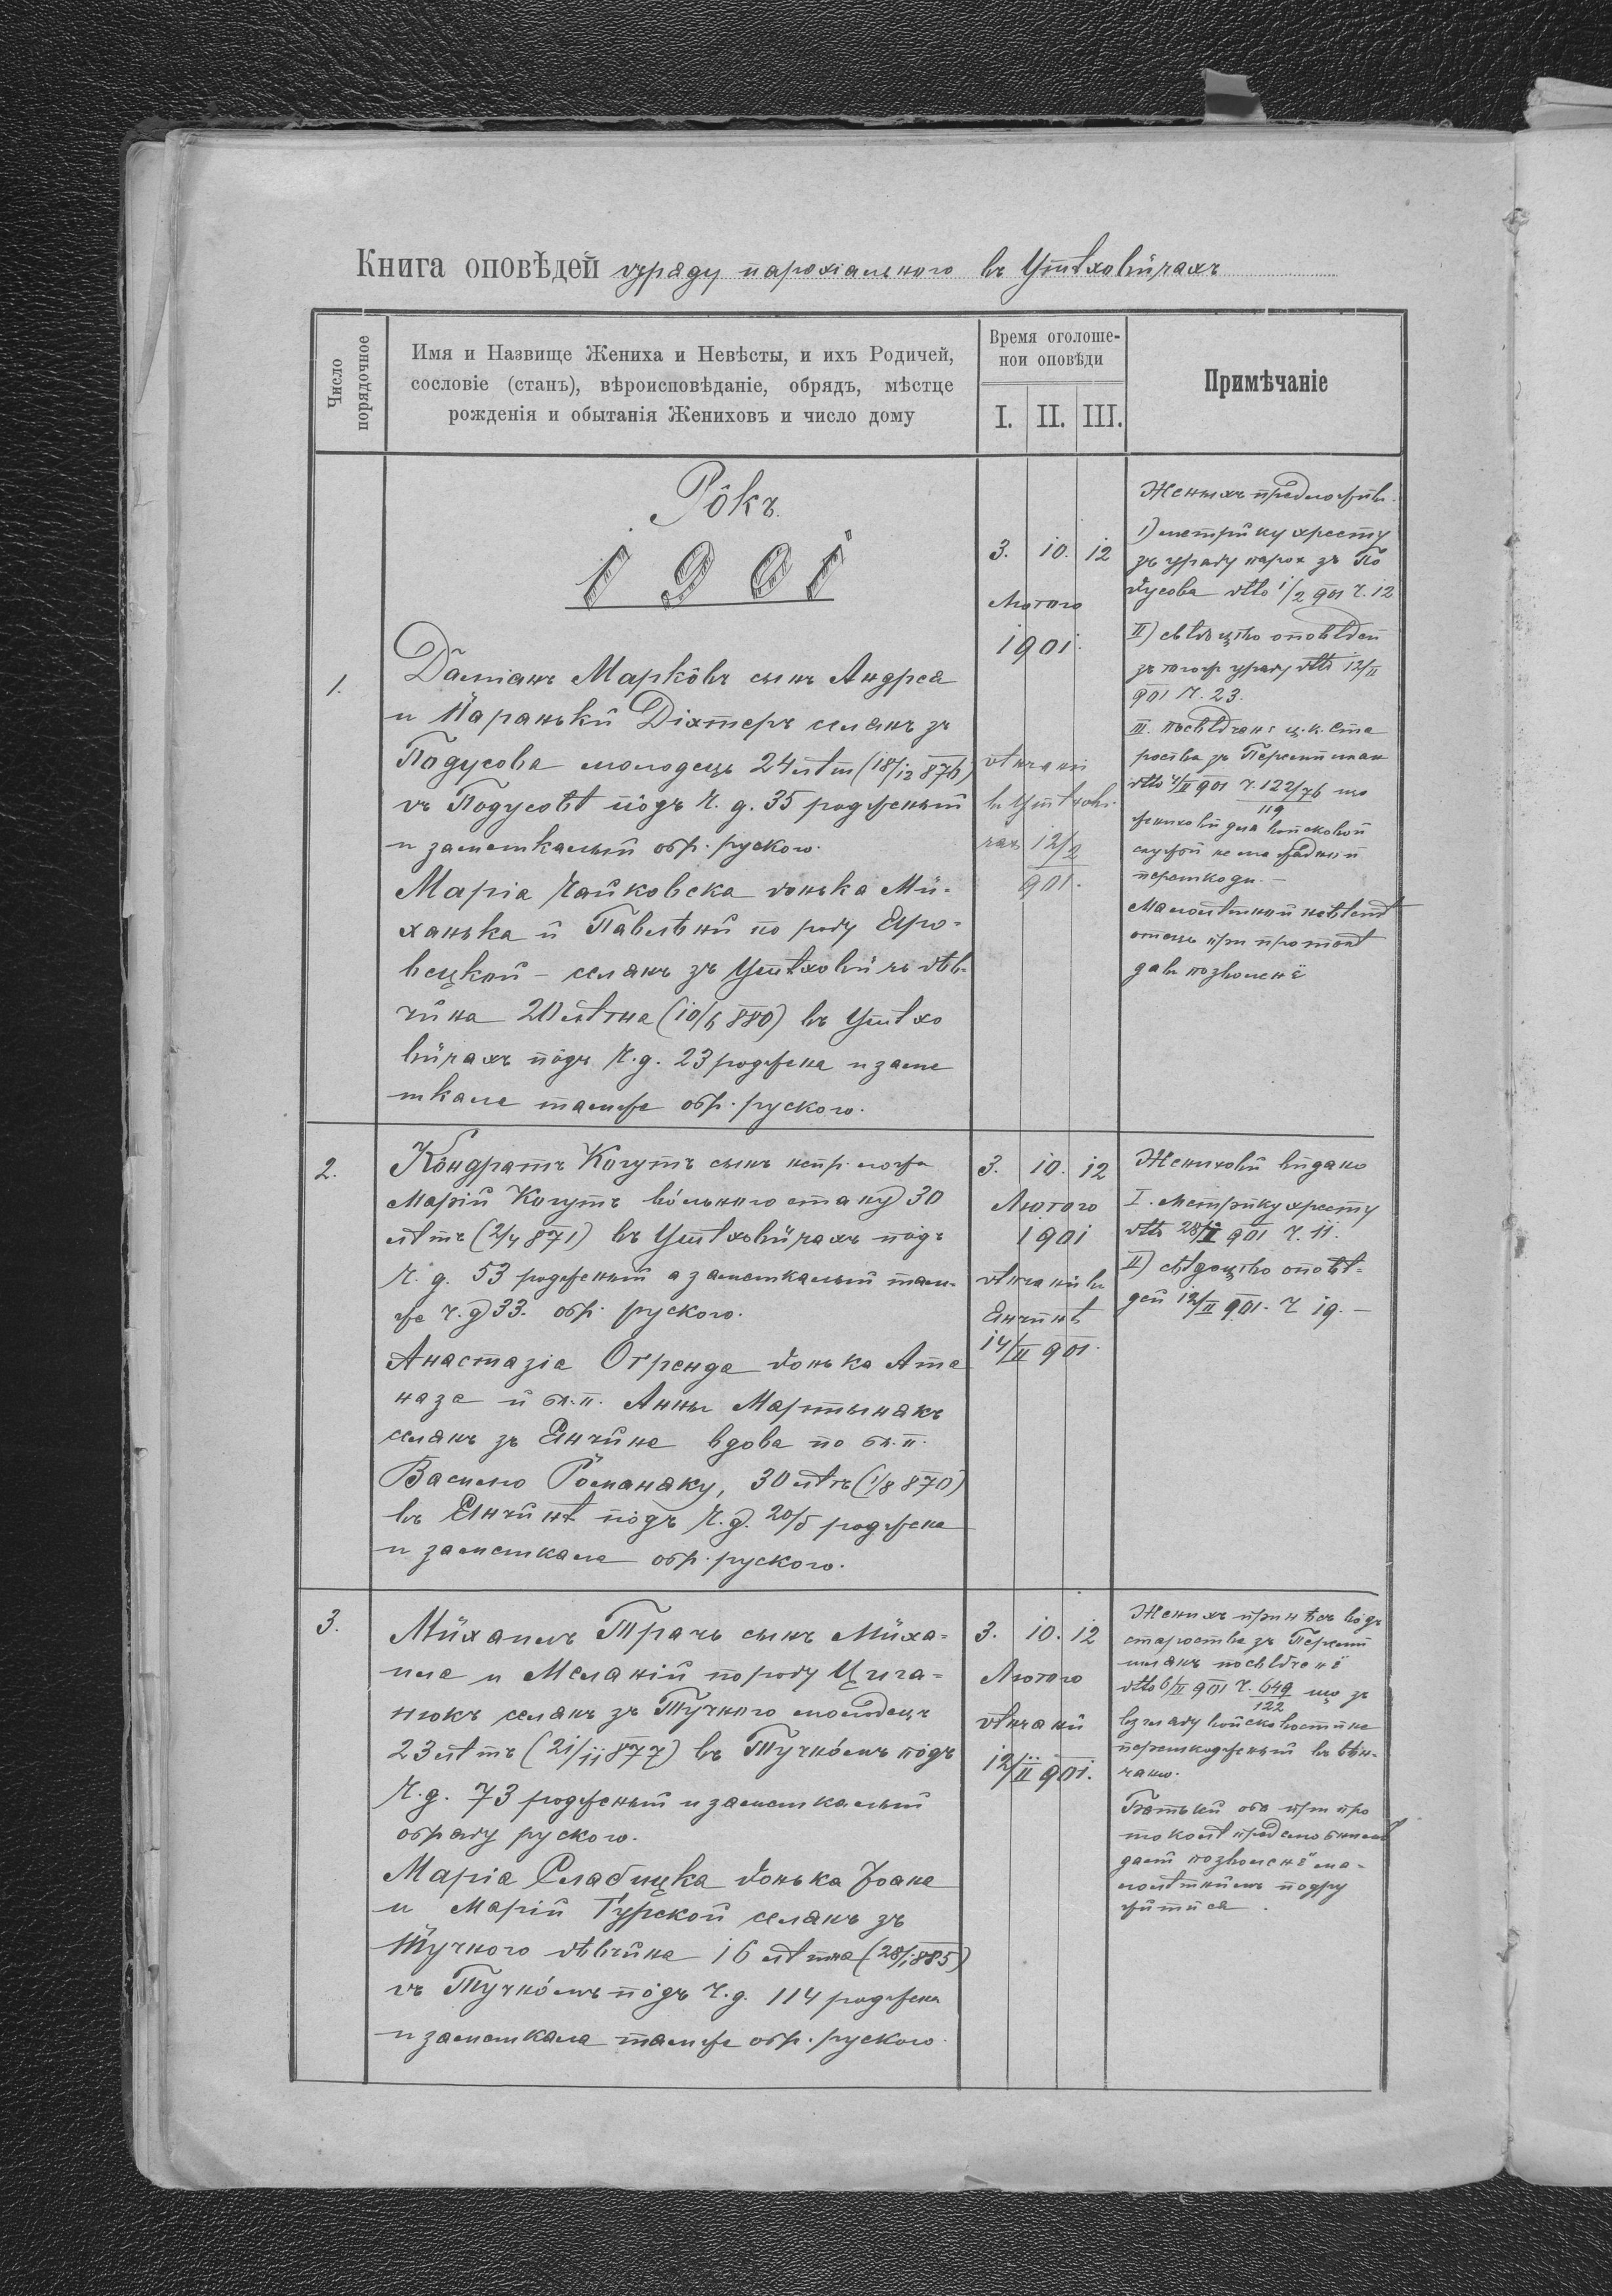 Книга оповѣдей уряду парохіального въ Утѣховичахъ
Число порядочное
Имя и Назвище Жениха и Невѣсты, и ихъ Родичей,
сословіе (станъ), вѣроисповѣданіе, обрядъ, мѣстце
рожденія и обытанія Жениховъ и число дому
Время оголоше-
нои оповѣди
I. II. III.
Примѣчаніе
Рôкъ
1901
1.
Даміанъ Маркôвъ сынъ Андрея
и Параньки Діхтеръ селянъ зъ
Подусова молодець 24 лѣт (18/12 876)
въ Подусовѣ пôдъ Ч. д. 35 родженый
и замешкалый обр. руского.
Маріа Чайковска донька Ми-
ханька и Павлѣны по роду Яро-
вецкой - селянъ зъ Утѣховичъ дѣв-
чина 20 лѣтна (10/6 880) въ Утѣхо
вичахъ пôдъ Ч. д. 23 роджена и заме
шкала тамже обр. руского.
3. 10. 12
Лютого
1901.
вѣнчани
въ Утѣхови-
чах 12/2
901.
Женихъ предложивъ
1) метрику хресту
зъ уряду парох зъ По
дусова dtto 1/2 901 Ч. 12
II) свѣдоцтво оповѣдей
зъ тогож уряду dtto 12/II
901 Ч. 23.
III. посвѣдчанє ц. к. Ста
роства зъ Перемишлян
dtto 4/II 901 Ч. 122/76 що
119
женихови для войсковои
служби не ма жадной
перешкоди. —
Малолѣтной невѣстѣ
отець при протокѣ
дав позволенѐ
2.
Кондратъ Когутъ сынъ непр. ложа
Маріи Когутъ вôльного стану 30
лѣтъ (2/4 871) въ Утѣховичахъ пôдъ
Ч. д. 53 родженый а замешкалый там-
же ч. д 33. обр. руского.
Анастазіа Огренда донька Ата
наза и бл. п. Анны Мартынакъ
селянъ зъ Янчина вдова по бл. п.
Василю Романаку, 30 лѣтъ (1/8 870)
въ Янчинѣ пôдъ Ч. д. 20/5 роджена
и замешкала обр. руского.
3. 10. 12
Лютого
1901
вѣнчани въ
Янчинѣ
14/II 901.
Женихови видано
I. Метрику хресту
dtto 28/I 901 Ч. 11.
II) свѣдоцтво оповѣ-
дей 12/II 901. Ч 19. —
3.
Михаилъ Трачъ сынъ Миха-
ила и Меланіи по роду Цига-
нюкъ селянъ зъ Тучного молодець
23 лѣтъ (21/11 877) въ Тучнôмъ пôдъ
Ч. д. 73 родженый и замешкалый
обряду руского.
Маріа Слабицка донька Јоана
и Маріи Гурской селянъ зъ
Тучного дѣвчина 16 лѣтна (28/1 885)
въ Тучнôмъ пôдъ Ч. д. 114 роджена
и замешкала тамже обр. руского
3. 10. 12
Лютого
вѣнчани
12/II 901.
Женихъ принѣсъ вôдъ
староства зъ Перемиш
лянъ посвѣдченѐ
dtto 6/II 901 Ч. 649 що зъ
122
взгляду войсковости не
перешкодженый въ вѣн-
чаню.
Батьки оба при про
токолѣ
дали позволенѐ ма-
лолѣтнымъ подру
житися.